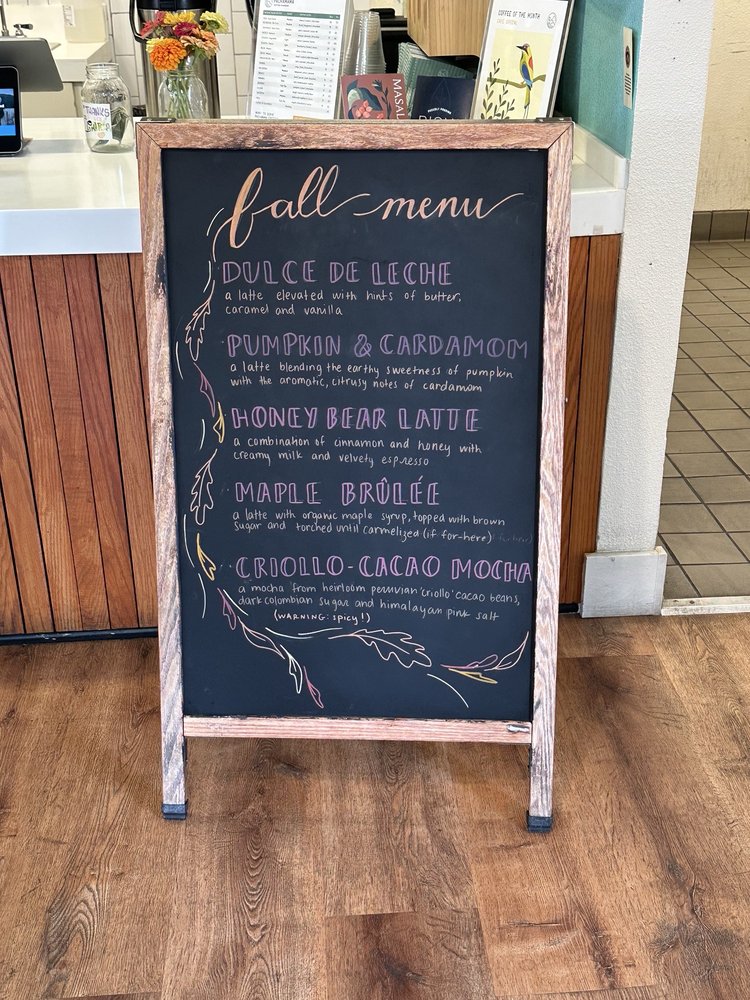 COFFEE OF THE MONTH
MASALA
THANKS
fall menu
DULCE DE LECHE
a latte elevated with hints of butter,
caramel and vanilla
PUMPKIN & CARDAMOM
a latte blending the earthy sweetness of pumpkin
with the aromatic, citrusy notes of cardamom
HONEY BEAR LATTE
a combination of cinnamon and honey with
creamy milk and velvety espresso
MAPLE BRÛLÉE
a latte with organic maple syrup, topped with brown
sugar and torched until carmelized (if for-here)
CRIOLLO-CACAO MOCHA
a mocha from heirloom peruvian 'criollo' cacao beans,
dark colombian sugar and himalayan pink salt
(WARNING: spicy!)